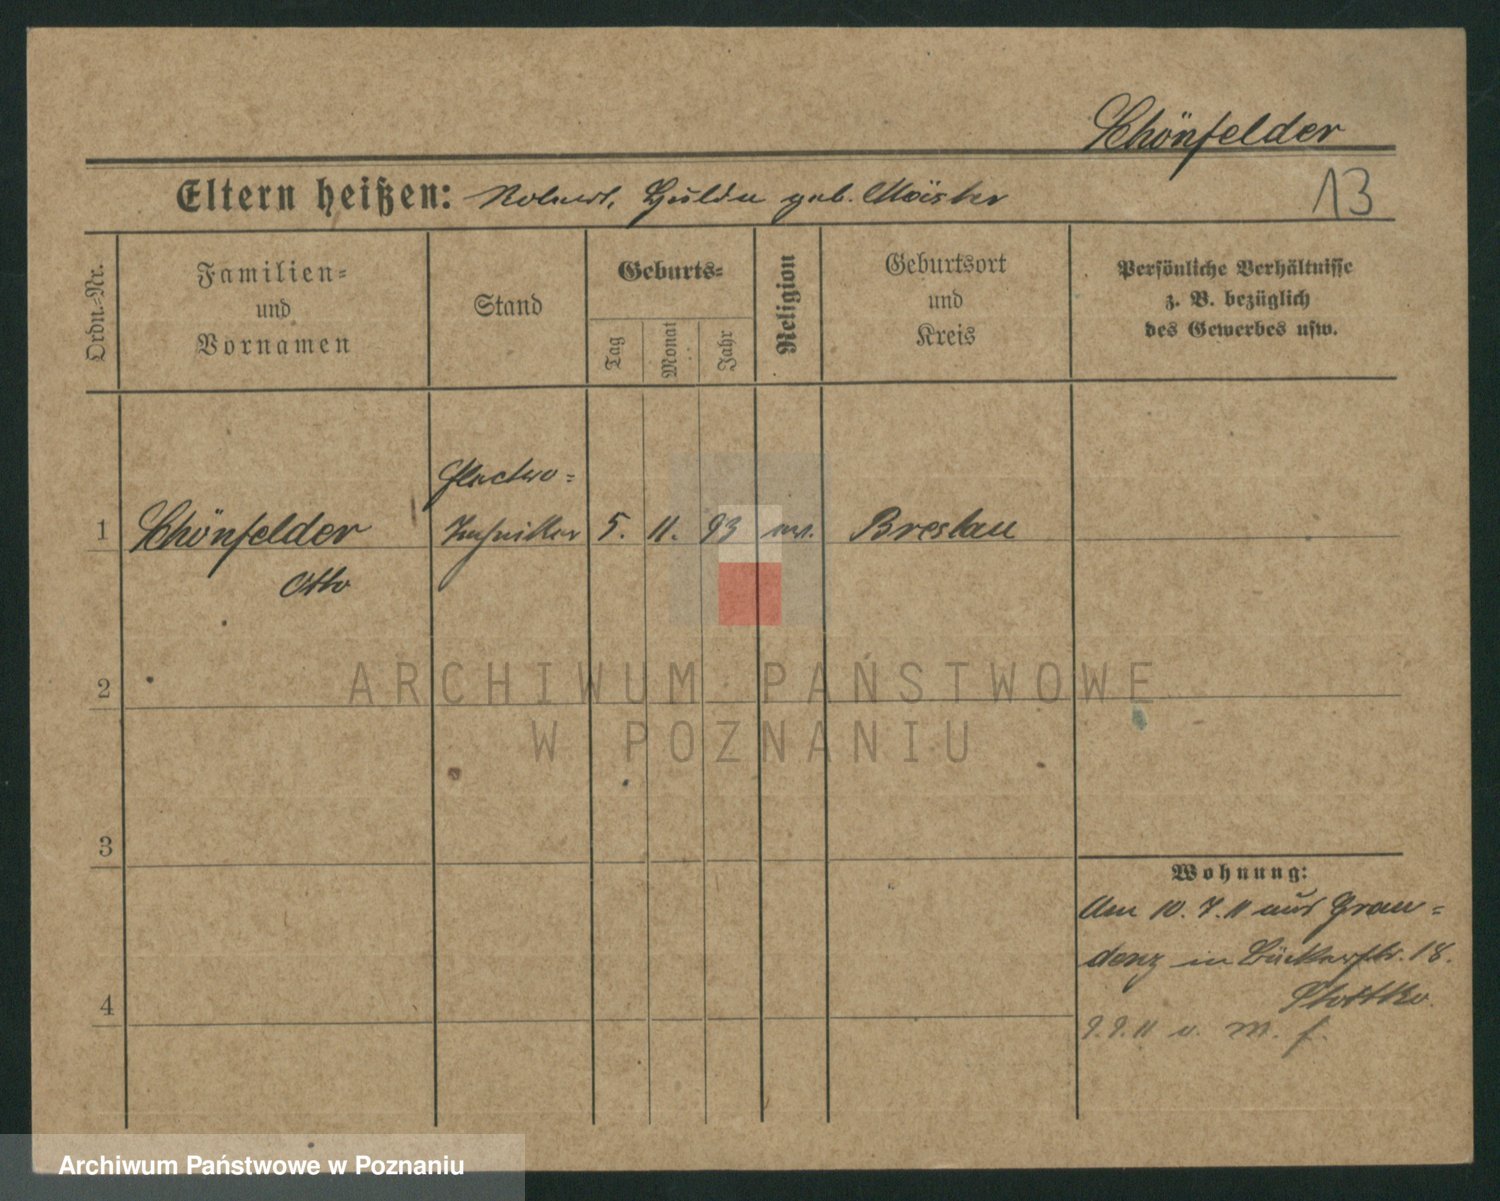 Schönfelder
Eltern heißen: Robert, Hulda geb. Meister
13
Ordn.-Nr.
Familien-
und
Vornamen
Stand
Geburts-
Tag
Monat
Jahr
Religion
Geburtsort
und
Kreis
Persönliche Verhältnisse
z. B. bezüglich
des Gewerbes usw.
Electro-
1 Schönfelder Techniker 5. 11. 93 Breslau
Otto
2
ARCHIWUM PAŃSTWOWE
W POZNANIU
3
Wohnung:
Am 10. 7. 11 aus Grau-
denz in Bäckerstr. 18.
4
9. 9. 11
Archiwum Państwowe w Poznaniu